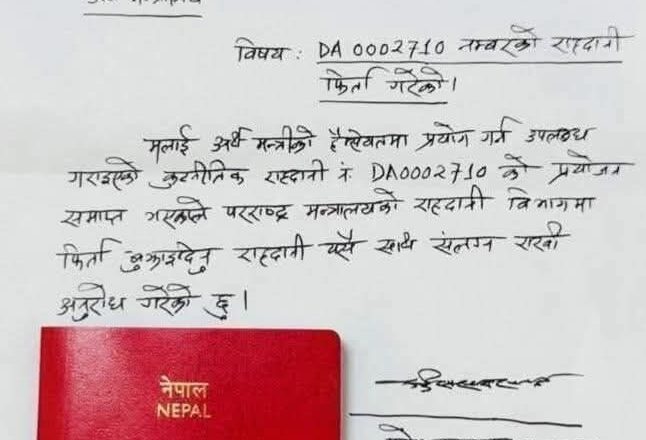 विषय : DA 0002710 नम्बरको राहदानी
फिर्ता गरेको।
मलाई अर्थ मन्त्रीको हैसियतमा प्रयोग गर्न उपलब्ध
गराइएको कुटनीतिक राहदानी नं. DA0002710 को प्रयोजन
समाप्त भएकाले परराष्ट्र मन्त्रालयको राहदानी विभागमा
फिर्ता बुझाइदिनु राहदानी यसै साथ संलग्न राखी
अनुरोध गरेको छु।
नेपाल
NEPAL